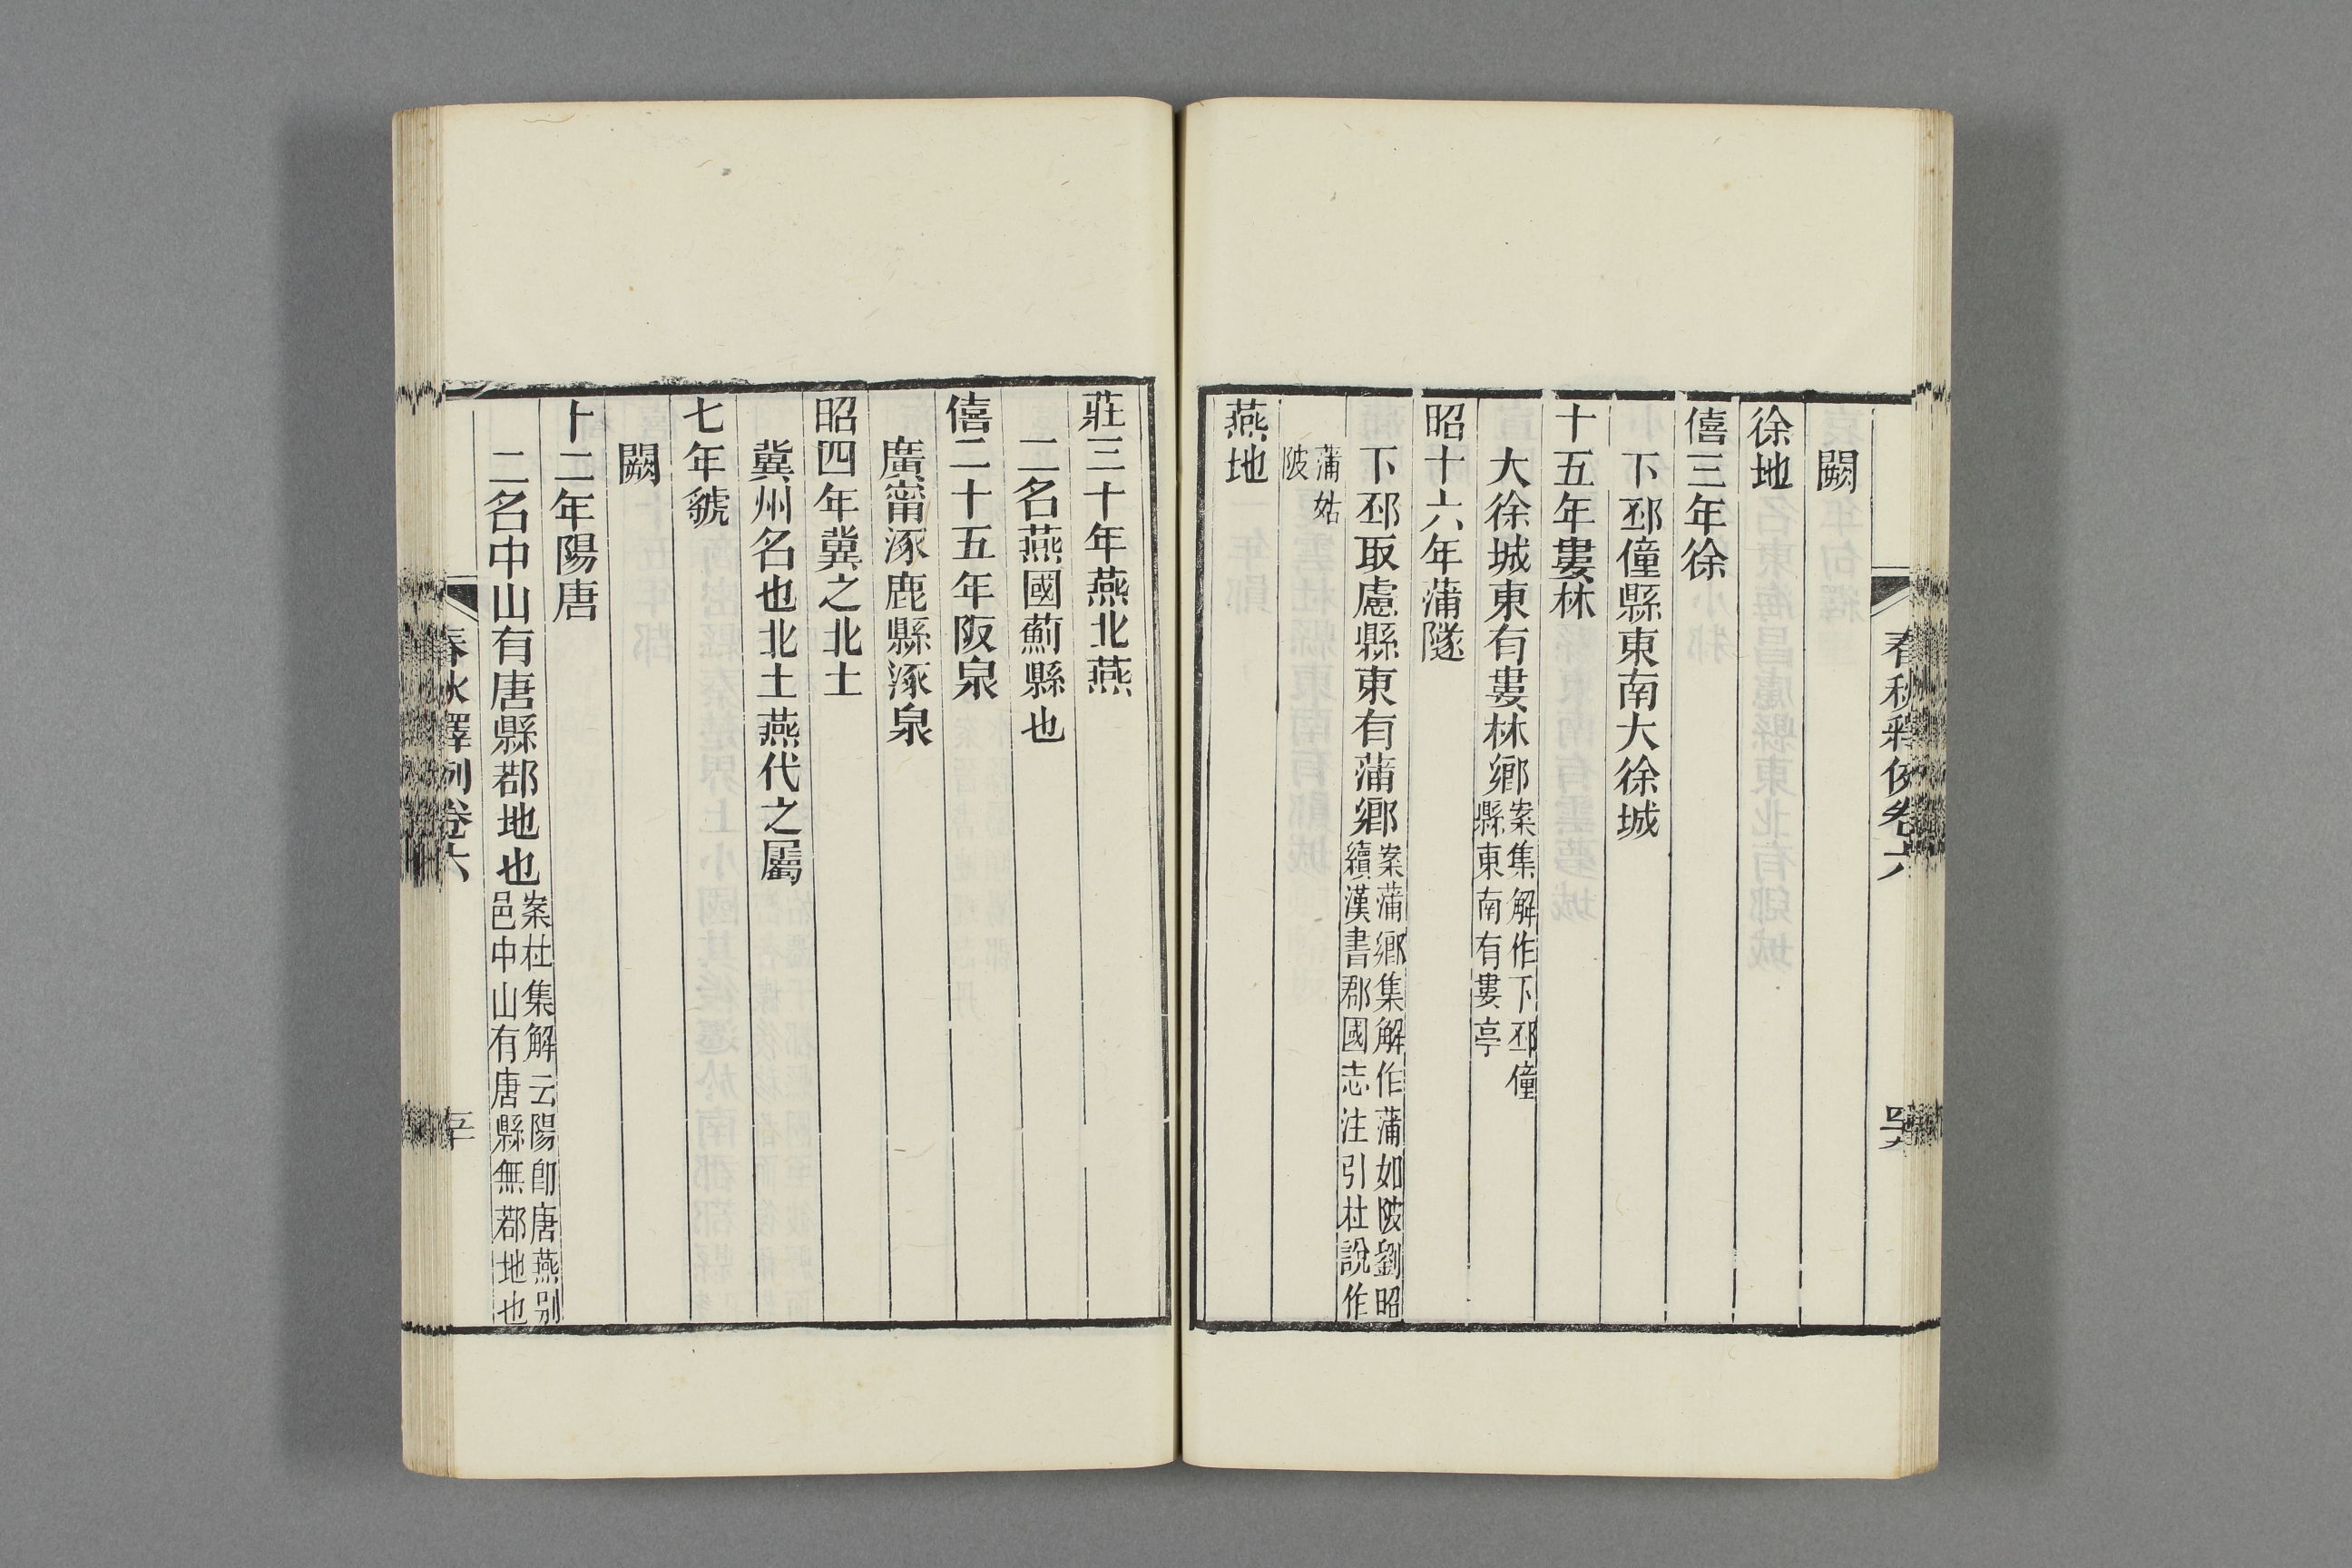 闕
徐地
僖三年徐
下邳僮縣東南大徐城
十五年婁林
大徐城東有婁林鄉案集解作下邳僮
縣東南有婁亭
昭十六年蒲隧
下邳取慮縣東有蒲鄉案蒲鄉集解作蒲如陂劉昭
續漢書郡國志注引杜說作
蒲姑
陂
燕地
莊三十年燕北燕
二名燕國薊縣也
僖二十五年阪泉
廣甯涿鹿縣涿泉
昭四年冀之北土
冀州名也北土燕代之屬
七年虢
闕
十二年陽唐
二名中山有唐縣鄀地也案杜集解云陽卽唐燕別
邑中山有唐縣無鄀地也
春秋釋例卷六